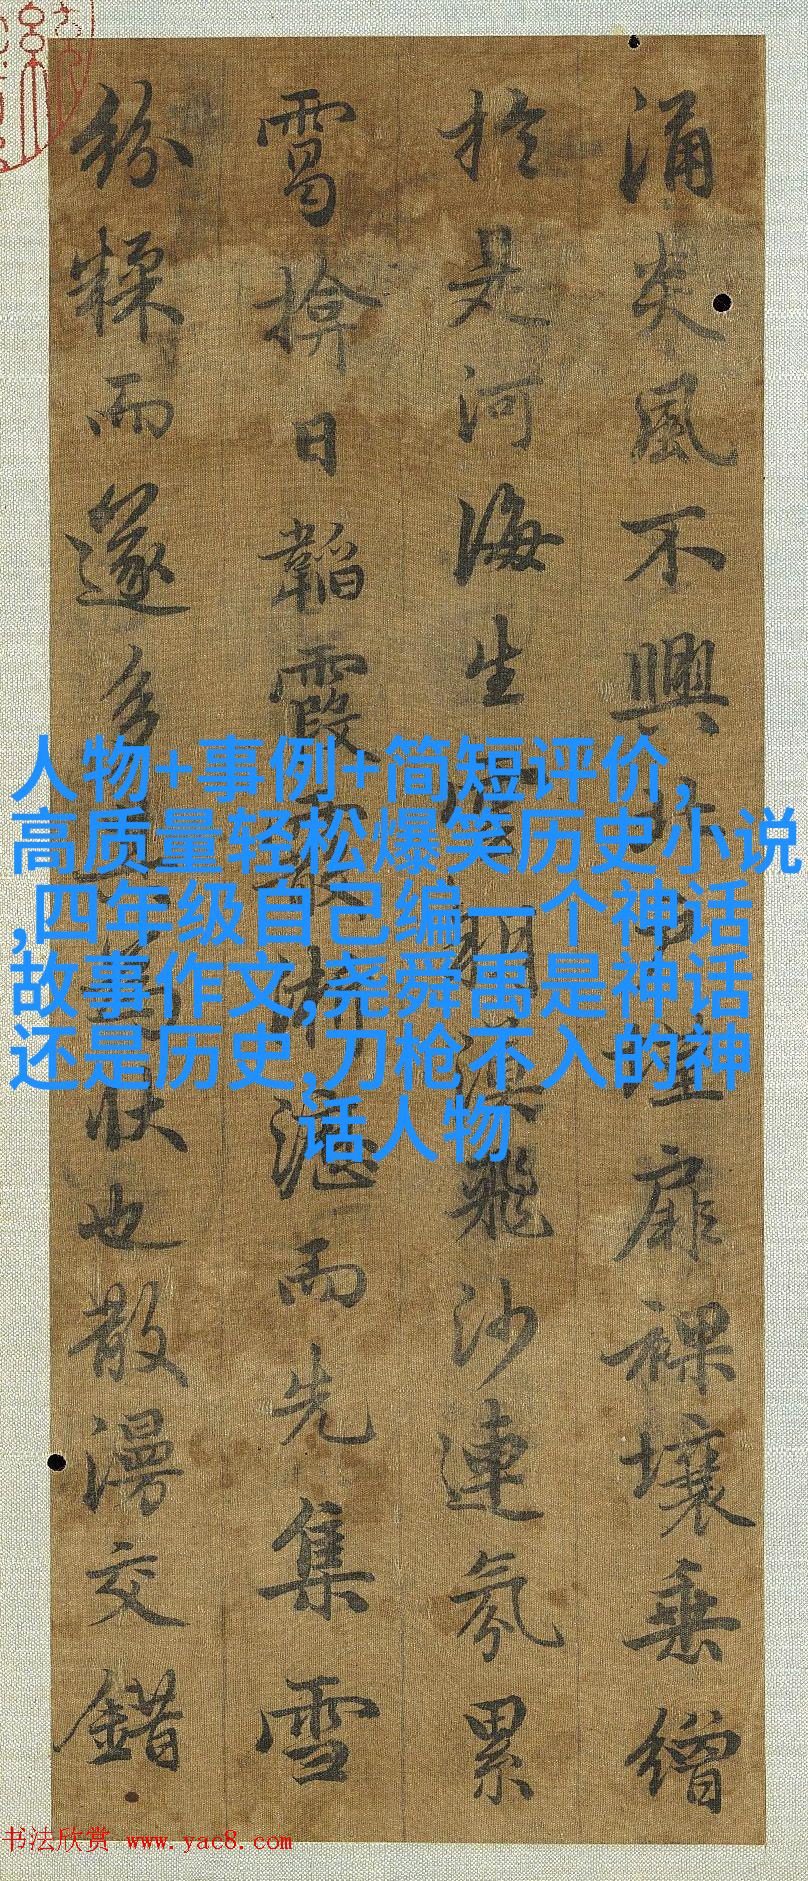 涌炎風不興北墐扉裸壤垂繒
於是河海生雲朔漠飛沙連氛累
靄揜日韜霞霰淅瀝而先集雪
紛糅而遂多其為狀也散漫交錯
人物+事例+简短评价,
高质量轻松爆笑历史小说
,四年级自己编一个神话
故事作文,尧舜禹是神话
还是历史,刀枪不入的神
话人物
书法欣赏 www.yac8.com